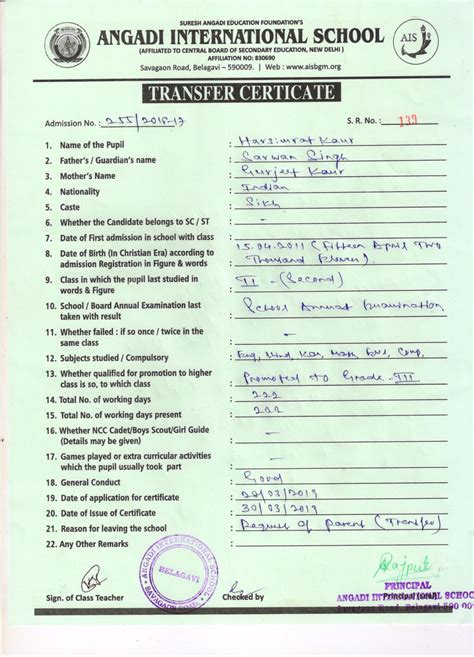 SURESH ANGADI EDUCATION FOUNDATION'S
ANGADI INTERNATIONAL SCHOOL
(AFFILIATED TO CENTRAL BOARD OF SECONDARY EDUCATION, NEW DELHI )
AFFILIATION NO: 830690
Savagaon Road, Belagavi – 590009. | Web : www.aisbgm.org
AIS
TRANSFER CERTICATE
Admission No. : 255/2016-17
S. R. No. : 139
1. Name of the Pupil : Harsimrat Kaur
2. Father's / Guardian's name : Sarwan Singh
3. Mother's Name : Gurjeet Kaur
4. Nationality : Indian
5. Caste : Sikh
6. Whether the Candidate belongs to SC / ST : –
7. Date of First admission in school with class :
8. Date of Birth (in Christian Era) according to : 15.04.2011 (Fifteen April Two
admission Registration in Figure & words Thousand Eleven).
9. Class in which the pupil last studied in : II - (Second)
words & Figure
10. School / Board Annual Examination last : School Annual Examination
taken with result
11. Whether failed : if so once / twice in the : –
same class
12. Subjects studied / Compulsory : Eng, Hind, Kan, Math, EVS, Comp.
13. Whether qualified for promotion to higher : Promoted to Grade - III
class is so, to which class
14. Total No. of working days : 222
15. Total No. of working days present : 222
16. Whether NCC Cadet/Boys Scout/Girl Guide : –
(Details may be given)
17. Games played or extra curricular activities : –
which the pupil usually took part
18. General Conduct : Good
19. Date of application for certificate : 28/03/2019
20. Date of Issue of Certificate : 30/03/2019
21. Reason for leaving the school : Request of Parent (Transfer)
22. Any Other Remarks :
ANGADI INTERNATIONAL SCHOOL
BELAGAVI
SAVAGAON ROAD
Rajput
PRINCIPAL
Sign. of Class Teacher
Checked by
ANGADI INTERNATIONAL SCHOOL
Savagaon Road, Belagavi 590 00